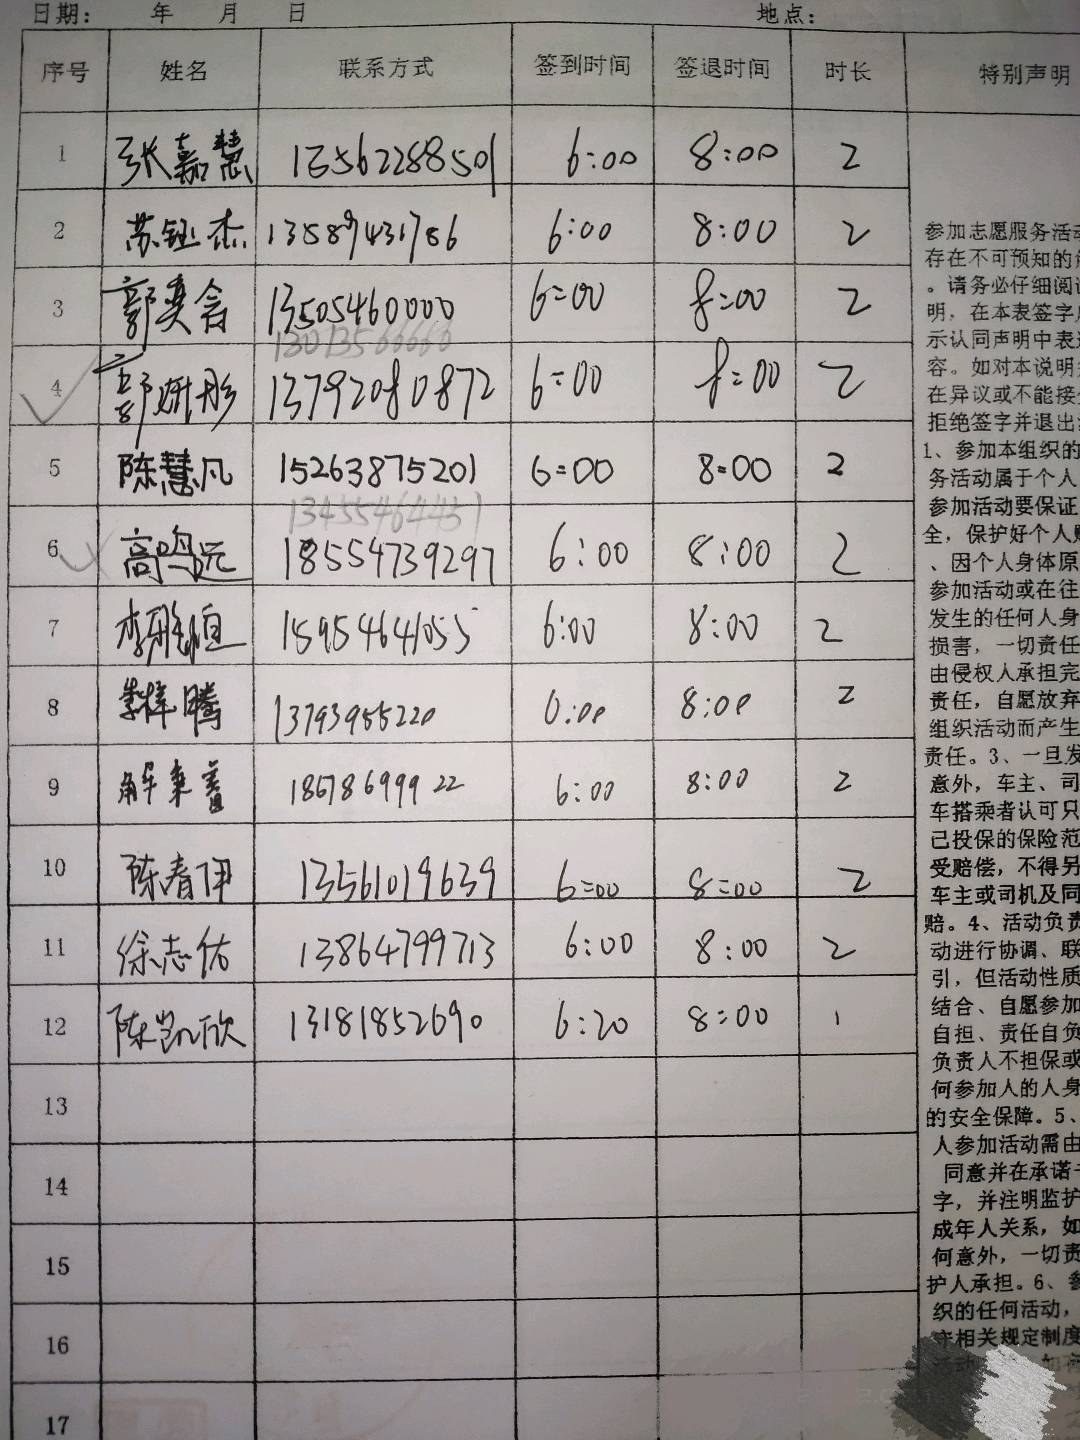 日期： 年 月 日 地点：
序号 姓名 联系方式 签到时间 签退时间 时长 特别声明
1 张嘉慧 13562288501 6:00 8:00 2
2 苏钰杰 13589431786 6:00 8:00 2
3 郭奕含 13505460000 6:00 8:00 2
13013566666
4 郭妍彤 13792080872 6:00 8:00 2
5 陈慧凡 15263875201 6:00 8:00 2
13455464451
6 高鸣远 18554739297 6:00 8:00 2
7 李雅恒 15954641055 6:00 8:00 2
8 李梓腾 13793955220 6:00 8:00 2
9 解秉 18678699922 6:00 8:00 2
10 陈春伊 13561019639 6:00 8:00 2
11 徐志佑 13864799713 6:00 8:00 2
12 陈凯欣 13181852690 6:20 8:00 1
13
14
15
16
17
参加志愿服务活动
存在不可预知的
。请务必仔细阅读
明，在本表签字
示认同声明中表
容。如对本说明
在异议或不能接
拒绝签字并退出
1、参加本组织的
务活动属于个人
参加活动要保证
全，保护好个人
、因个人身体原
参加活动或在往
发生的任何人身
损害，一切责任
由侵权人承担完
责任，自愿放弃
组织活动而产生
责任。3、一旦发
意外，车主、司
车搭乘者认可只
己投保的保险范
受赔偿，不得另
车主或司机及同
赔。4、活动负责
动进行协调、联
引，但活动性质
结合、自愿参加
自担、责任自负
负责人不担保或
何参加人的人身
的安全保障。5、
人参加活动需由
同意并在承诺
字，并注明监护
成年人关系，如
何意外，一切责
护人承担。6、参
织的任何活动，
守相关规定制度